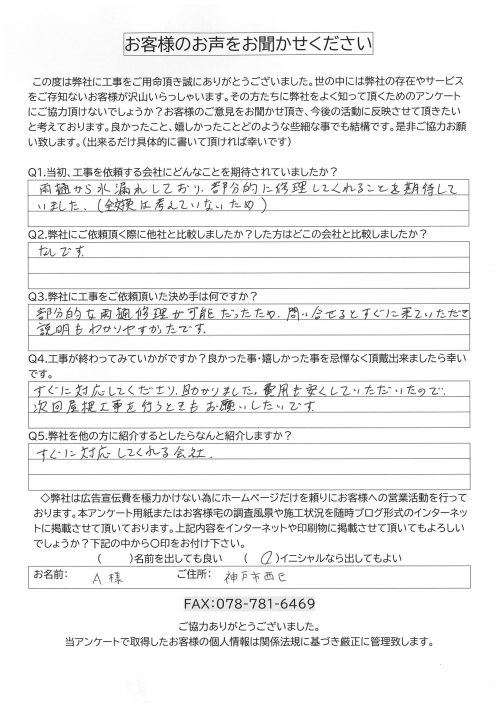 お客様のお声をお聞かせください
この度は弊社に工事をご用命頂き誠にありがとうございました。世の中には弊社の存在やサービス
をご存知ないお客様が沢山いらっしゃいます。その方たちに弊社をよく知って頂くためのアンケート
にご協力頂けないでしょうか?お客様のご意見をお聞かせ頂き、今後の活動に反映させて頂きたい
と考えております。良かったこと、嬉しかったことどのような些細な事でも結構です。是非ご協力お願
い致します。(出来るだけ具体的に書いて頂ければ幸いです)
Q1.当初、工事を依頼する会社にどんなことを期待されていましたか?
雨樋から水漏れしており、部分的に修理してくれることを期待して
いました。(全交換は考えていないため)
Q2.弊社にご依頼頂く際に他社と比較しましたか?した方はどこの会社と比較しましたか?
なしです。
Q3.弊社に工事をご依頼頂いた決め手は何ですか?
部分的な雨樋修理が可能だったため、問い合せるとすぐに来ていただき
説明もわかりやすかったです。
Q4.工事が終わってみていかがですか?良かった事・嬉しかった事を忌憚なく頂戴出来ましたら幸い
です。
すぐに対応してくださり、助かりました。費用も安くしていただいたので、
次回屋根工事を行うときもお願いしたいです。
Q5.弊社を他の方に紹介するとしたらなんと紹介しますか?
すぐに対応してくれる会社。
◇弊社は広告宣伝費を極力かけない為にホームページだけを頼りにお客様への営業活動を行って
おります。本アンケート用紙またはお客様宅の調査風景や施工状況を随時ブログ形式のインターネッ
トに掲載させて頂いております。上記内容をインターネットや印刷物に掲載させて頂いてもよろしい
でしょうか?下記の中から〇印をお付け下さい。
( )名前を出しても良い (○)イニシャルなら出してもよい
お名前: A様 ご住所: 神戸市西区
FAX:078-781-6469
ご協力ありがとうございました。
当アンケートで取得したお客様の個人情報は関係法規に基づき厳正に管理致します。